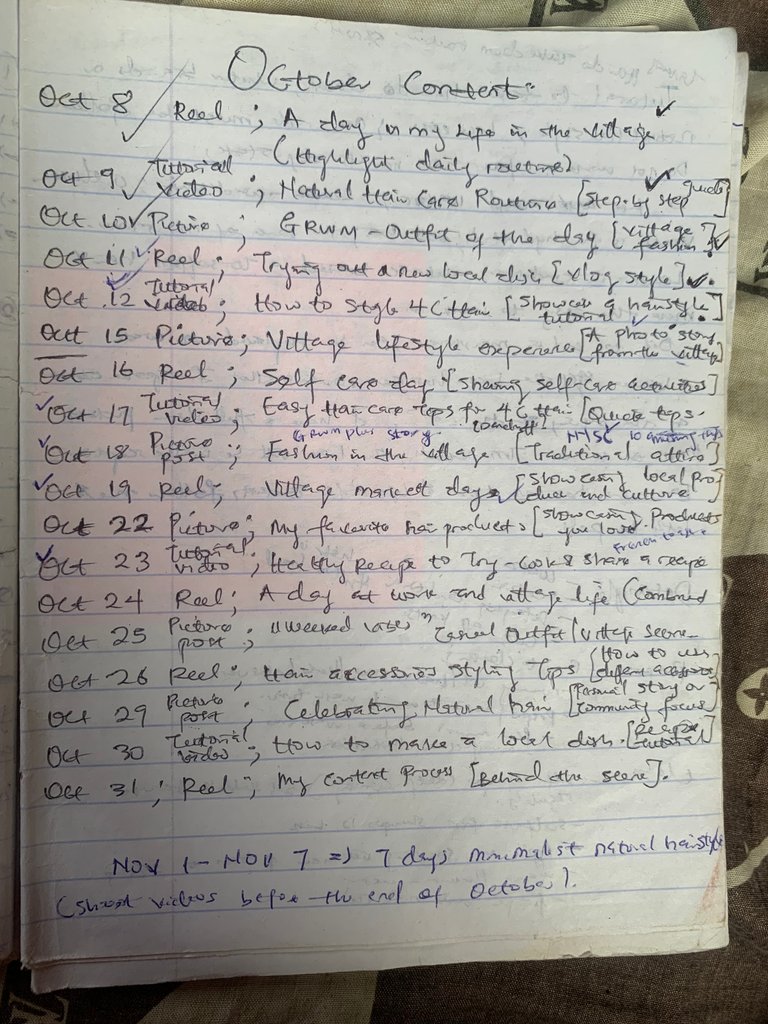 October Content:
Oct 8 Reel; A day in my life in the village
(Highlight daily routine)
Oct 9 Tutorial video; Natural Hair Care Routine [Step-by step guide]
Oct 10 Picture; GRWM - Outfit of the day [Village fashion]
Oct 11 Reel; Trying out a new local dish [Vlog style].
Oct 12 Tutorial video; How to style 4C Hair [Showcase a hairstyle tutorial]
Oct 15 Picture; Village lifestyle experience [A photo story from the village]
Oct 16 Reel; Self care day [Sharing self-care activities]
Oct 17 Tutorial video; Easy Hair care Tips for 4C Hair [Quick tips.
GRWM plus story. NYSC
Oct 18 Picture post; Fashion in the village [Traditional attire]
Oct 19 Reel; Village market day [Showcasing local produce and culture
Oct 22 Picture; My favorite hair products [Showcasing Products you love.
Oct 23 Tutorial video; Healthy Recipe to Try - Cook & share a recipe
Oct 24 Reel; A day at work and village life (Combined
Oct 25 Picture post; Weekend vibes "Casual Outfit [Village scene
Oct 26 Reel; Hair accessories styling Tips [How to use different accessories]
Oct 29 Picture post; Celebrating Natural hair [Personal story or community focus]
Oct 30 Tutorial video; How to make a local dish. [Recipe tutorial]
Oct 31; Reel; My content Process [Behind the scene].
Nov 1 - Nov 7 => 7 days minimalist natural hairstyle
(Shoot videos before the end of October).